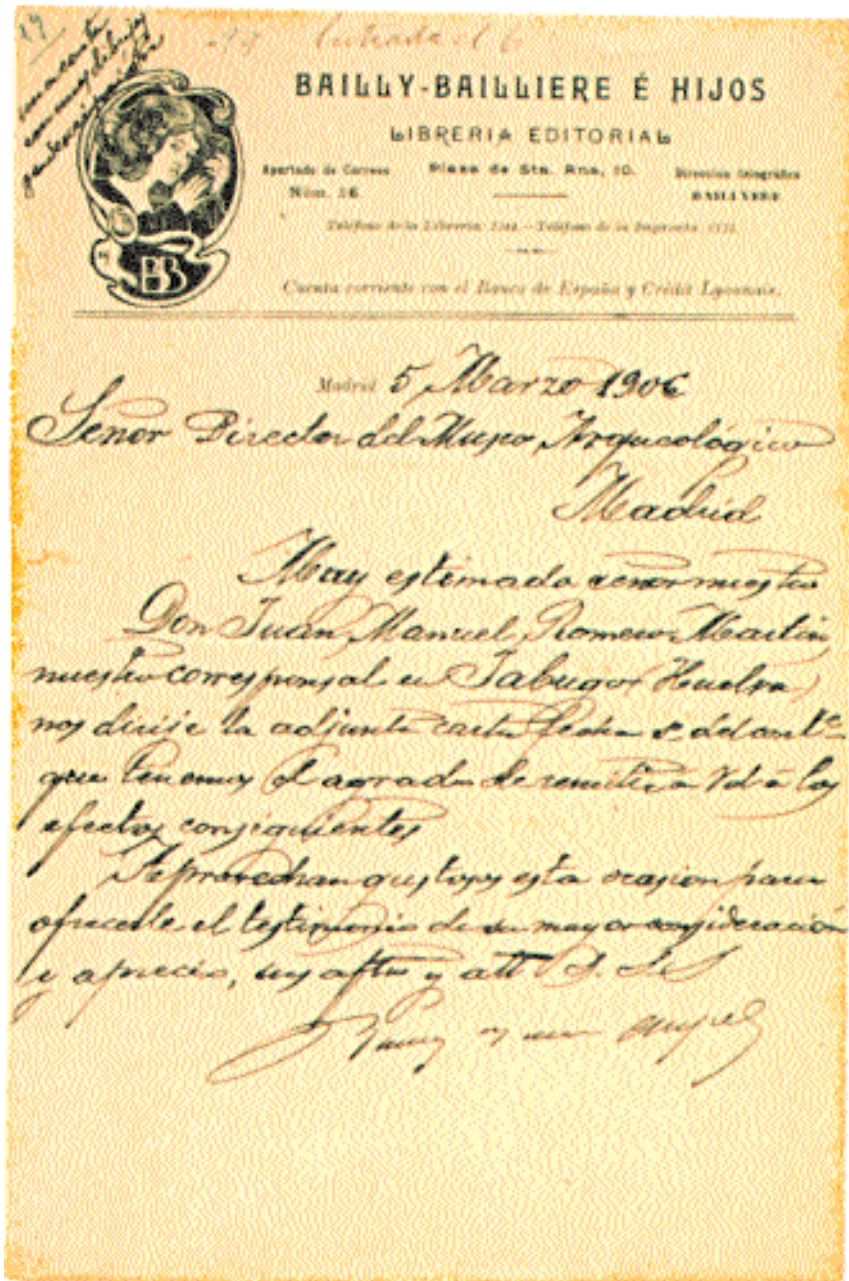 19
una carta
con muy dibujos
Entrada el 6
BAILLY-BAILLIERE É HIJOS
LIBRERIA EDITORIAL
Apartado de Correos Plaza de Sta. Ana, 10. Dirección telegráfica
Núm. 56
Teléfono de la Librería: — Teléfono de la Imprenta:
Cuenta corriente con el Banco de España y Crédit Lyonnais.
BB
Madrid 5 Marzo 1906
Señor Director del Museo Arqueológico
Madrid
Muy estimado señor nuestro
Don Juan Manuel Romero Martin,
nuestro corresponsal en Jabugo (Huelva)
nos dirije la adjunta carta fecha 2 del corte
que tenemos el agrado de remitir a Vd a los
efectos consiguientes
Aprovechan gustosos esta ocasion para
ofrecerle el testimonio de su mayor consideración
y aprecio, sus aftos y att S. S. S